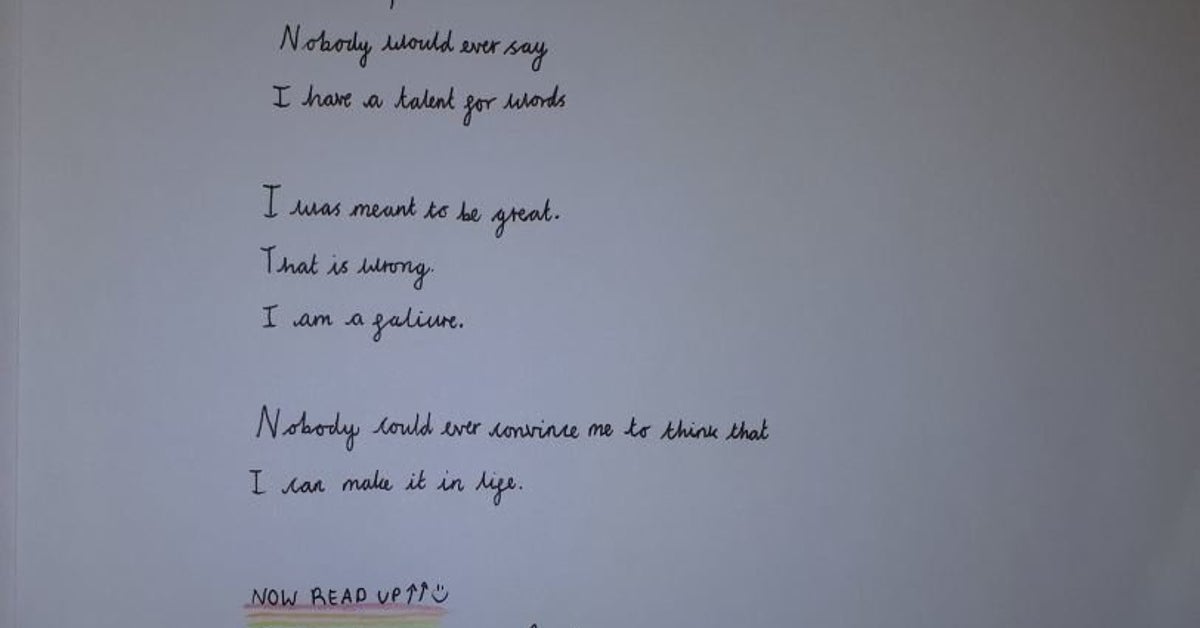 Nobody would ever say
I have a talent for words
I was meant to be great.
That is wrong.
I am a faliure.
Nobody could ever convince me to think that
I can make it in life.
NOW READ UP↑↑☺